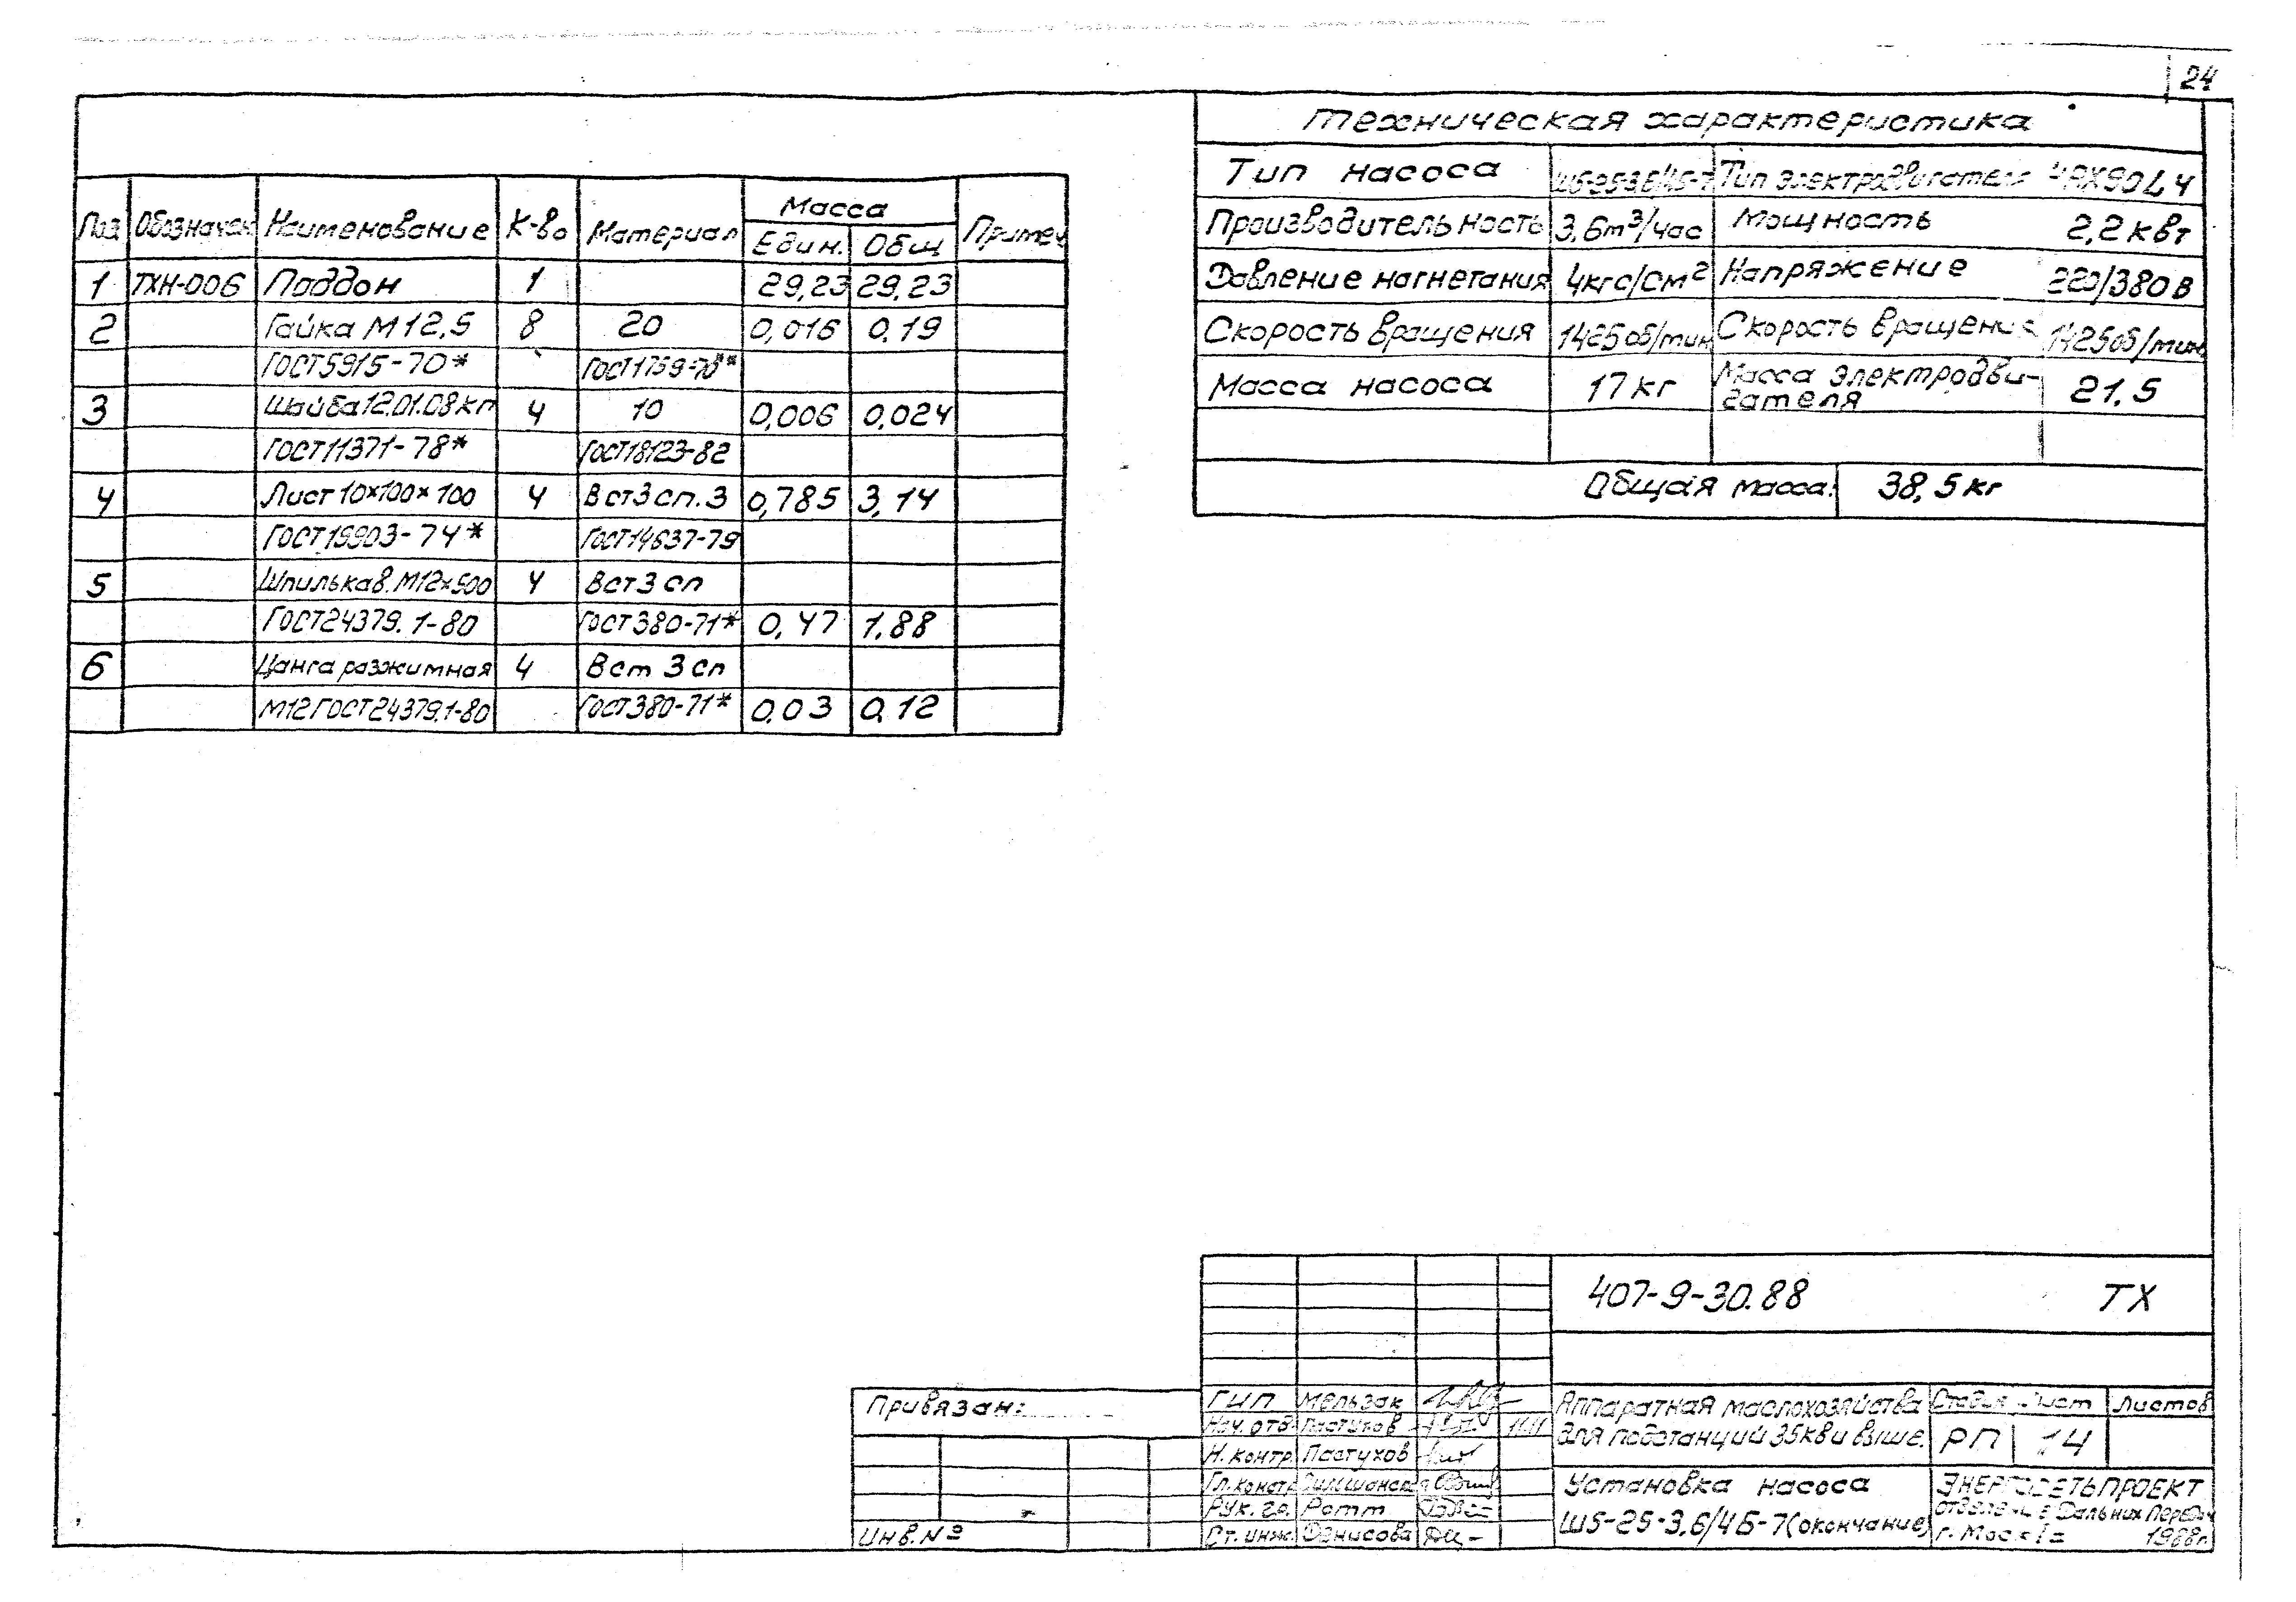 24
Поз Обозначен Наименование К-во Материал Масса Един. Общ Примеч
1 ТХН-006 Поддон 1 29,23 29,23
2 Гайка М12,5 8 20 0,016 0,19
ГОСТ5915-70*
3 Шайба12.01.08кп 4 10 0,006 0,024
ГОСТ11371-78* ГОСТ18123-82
4 Лист10х100х100 4 Вст3сп.3 0,785 3,14
ГОСТ19903-74* ГОСТ14637-79
5 Шпилька8.М12х500 4 Вст3сп
ГОСТ24379.1-80 ГОСТ380-71* 0,47 1,88
6 Цанга разжимная 4 Вст 3сп
М12ГОСТ24379.1-80 ГОСТ380-71* 0,03 0,12
Техническая характеристика
Тип насоса Тип электродвигателя 4АХ90L4
Производительность 3,6m³/час Мощность 2,2квт
Давление нагнетания 4кгс/см² Напряжение 220/380в
Скорость вращения 1425об/мин Скорость вращения 1425об/мин
Масса насоса 17кг Масса электродви-
гателя 21,5
Общая масса: 38,5кг
407-9-30.88 ТХ
Привязан:
Инв.№
ГИП Мельзак
Нач. отд. Пастухов
Н.контр. Пастухов
Гл.констр.
Рук. гр. Ротт
Ст. инж. Денисова
Аппаратная маслохозяйства
для подстанций 35кв и выше.
Стадия Лист Листов
РП 14
Установка насоса
Ш5-25-3,6/4Б-7(окончание)
ЭНЕРГОСЕТЬПРОЕКТ
отделение Дальних Передач
г. Москва 1988г.